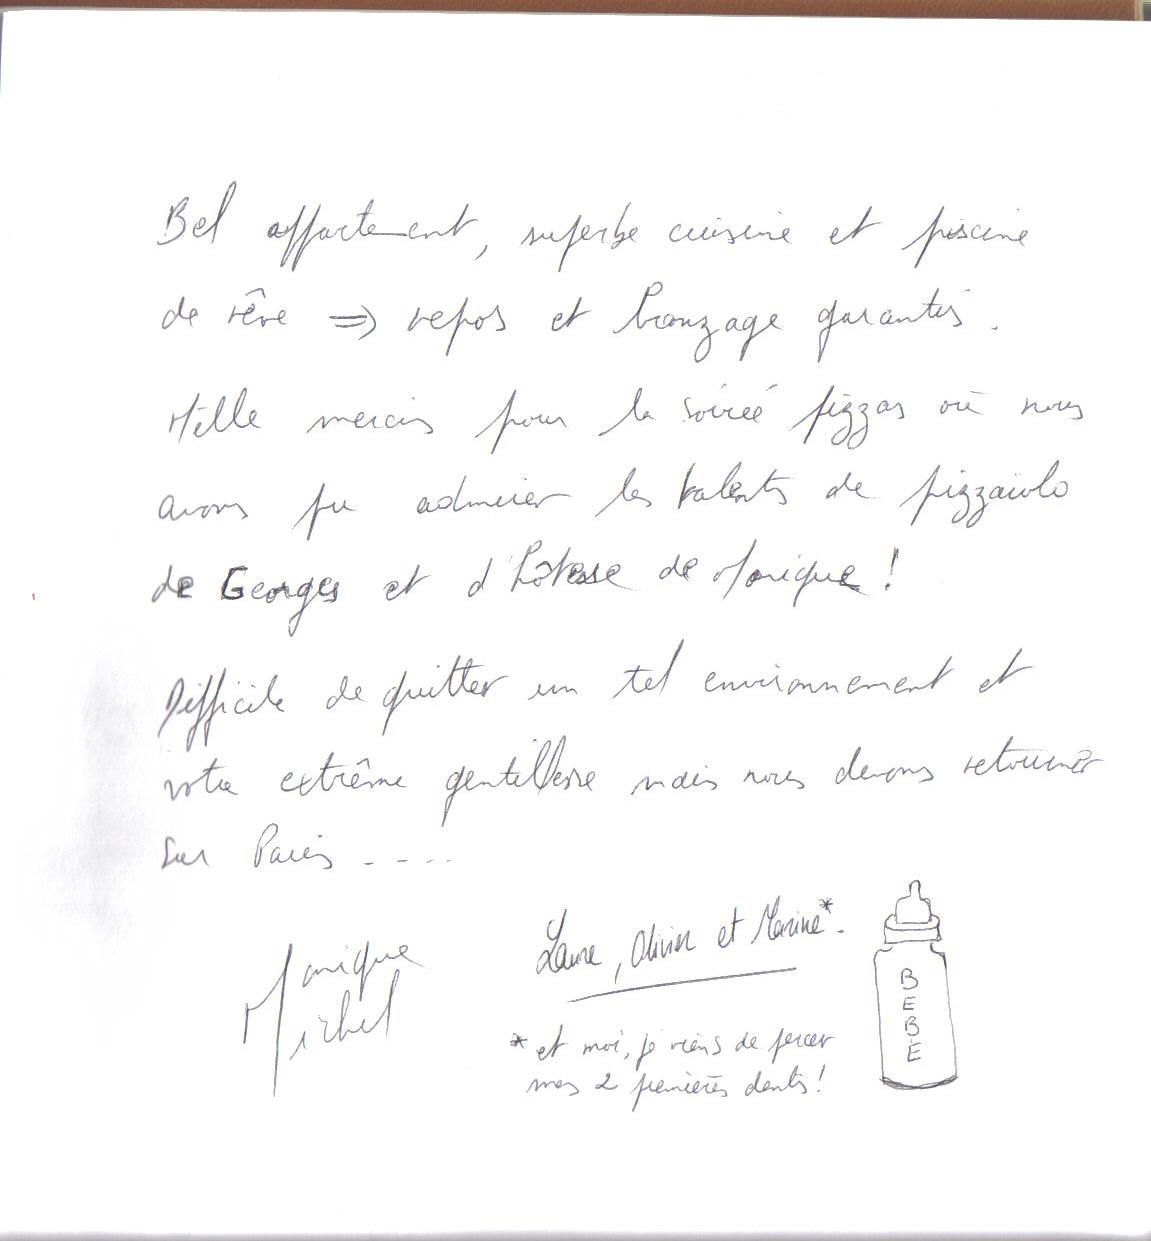 Bel appartement, superbe cuisine et piscine
de rêve => repos et bronzage garantis.
Mille mercis pour la soirée pizzas où nous
avons pu admirer les talents de pizzaïolo
de Georges et d'hôtesse de Monique !
Difficile de quitter un tel environnement et
votre extrême gentillesse mais nous devons retourner
sur Paris ....
Monique
Michel
Laure, Olivier et Marine*.
* et moi, je viens de percer
mes 2 premières dents !
BEBE